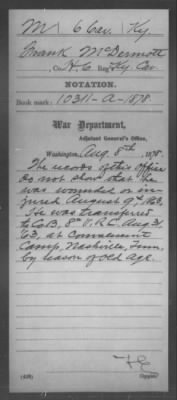 M | 6 Cav. | Ky.
Frank McDermott
Co. H, 6 Reg Ky Cav.
NOTATION.
Book mark: 10311-A-1878
War Department,
Adjutant General's Office,
Washington, Aug. 8th, 1878.
The records of this office
do not show that he
was wounded or in-
jured August 9th 1863.
He was transferred
to Co. B, 8" V.R.C. Aug. 31,
'63, at Convalescent
Camp, Nashville, Tenn.,
by reason of old age.
Copyist.